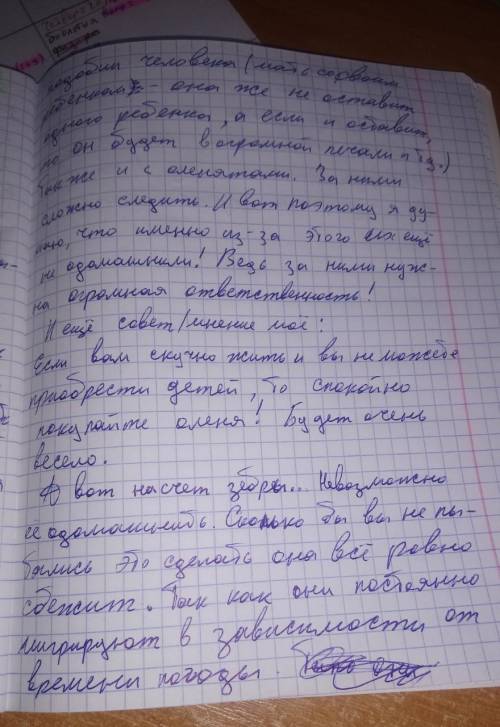 биология
подобии человека (мать со своим
ребенком - она же не оставит
одного ребенка, а если и оставит,
то он будет в огромной печали и т.д.)
Так же и с оленятами. За ними
сложно следить. И вот поэтому я ду-
маю, что именно из-за этого их ещё
не одомашнили! Ведь за ними нуж-
на огромная ответственность!
И ещё совет/мнение моё:
Если вам скучно жить и вы не можете
приобрести детей, то спокойно
покупайте оленя! Будет очень
весело.
А вот насчет зебры... Невозможно
её одомашнить. Сколько бы вы не пы-
тались это сделать она всё равно
сбежит. Так как они постоянно
мигрируют в зависимости от
времени погоды.